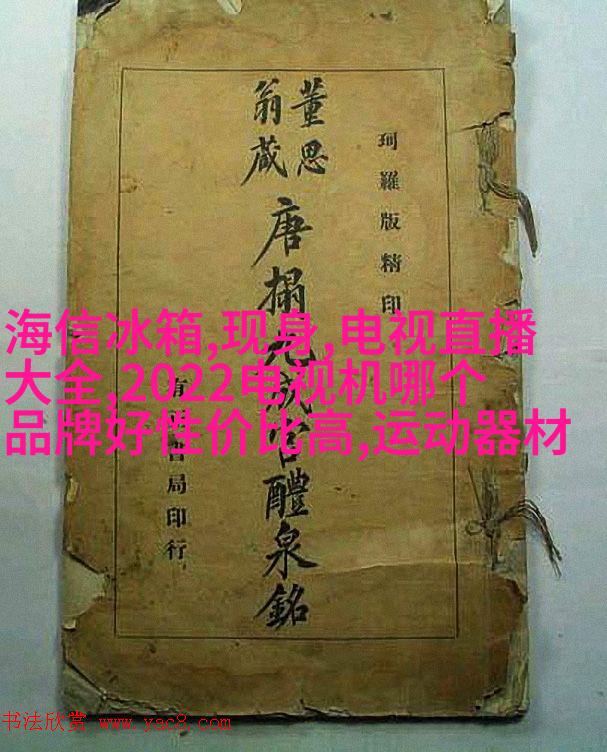 珂羅版精印
董思
翁蔵
唐搨九成宮醴泉銘
有書局印行
海信冰箱,现身,电视直播
大全,2022电视机哪个
品牌好性价比高,运动器材
书法欣赏 www.yac8.com